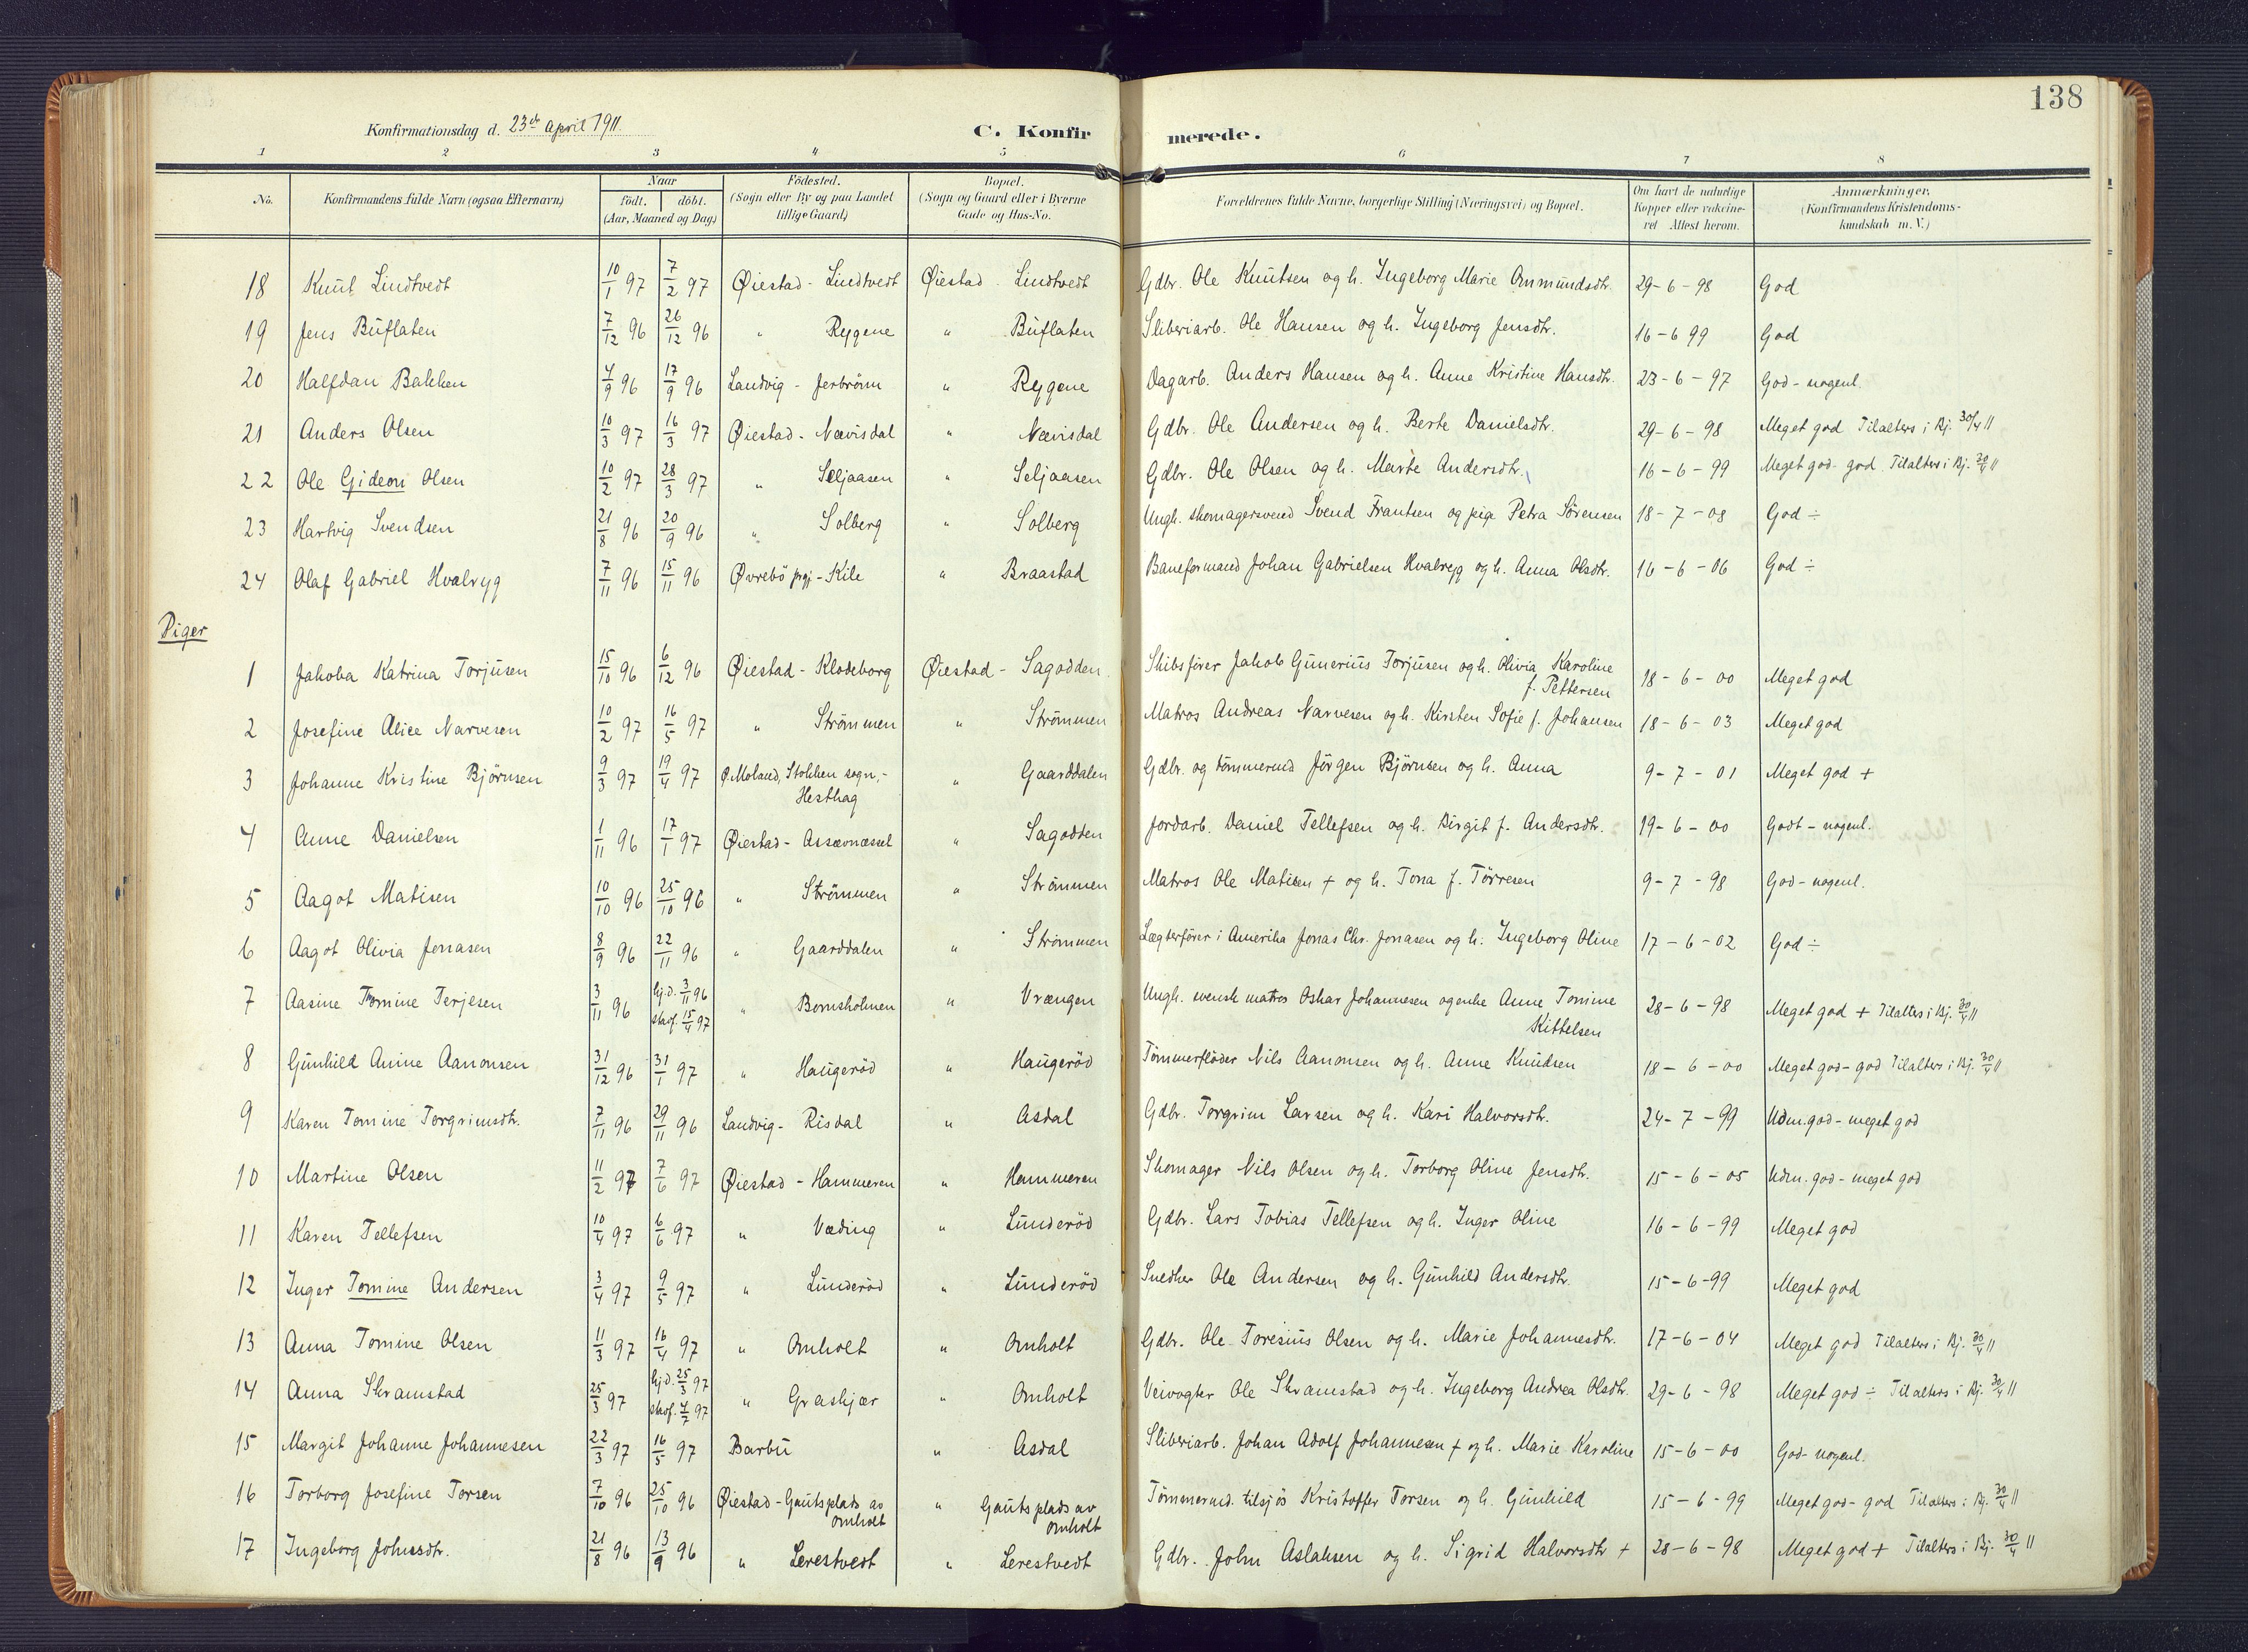 138
Konfirmationsdag d. 23de april 1911.
C. Konfirmerede.
1 2 3 4 5 6 7 8
No. | Konfirmandens fulde Navn (ogsaa Efternavn) | Naar født. døbt. (Aar, Maaned og Dag) | Fødested. (Sogn eller By og paa Landet tillige Gaard) | Bopæl. (Sogn og Gaard eller i Byerne Gade og Hus-No. | Forældrenes fulde Navne, borgerlige Stilling (Næringsvei) og Bopæl. | Om havt de naturlige Kopper eller vakcineret Attest herom. | Anmærkninger. (Konfirmandens Kristendomskundskab m.V.)
18 Knut Lindtvedt 10/1 97 7/2 97 Øiestad - Lindtvedt Øiestad - Lindtvedt Gdbr. Ole Knutsen og h. Ingeborg Marie Omundsdtr. 29-6-98 God
19 Jens Buflaten 7/12 96 26/12 96 " Rygene " Buflaten Sliberiarb. Ole Hansen og h. Ingeborg Jensdtr. 16-6 99 God
20 Halfdan Bakken 4/9 96 17/9 96 Landvig - Jerbrönn " Rygene Dagarb. Anders Hansen og h. Anne Kristine Hansdtr. 23-6-97 God - nogenl.
21 Anders Olsen 10/3 97 16/3 97 Øiestad - Nævisdal " Nævisdal Gdbr. Ole Andersen og h. Berte Danielsdtr. 29-6-98 Meget god Tilalters i Bj. 30/4 11
22 Ole Gideon Olsen 10/2 97 28/3 97 " Seljaasen " Seljaasen Gdbr. Ole Olsen og h. Marte Andersdtr. 16-6-99 Meget god - god. Tilalters i Bj. 30/4 11
23 Hartvig Svendsen 21/8 96 20/9 96 " Solberg " Solberg Ungk. skomagersvend Svend Frantsen og pige Petra Sörensen 18-7-08 God ÷
24 Olaf Gabriel Hvalryg 7/11 96 15/11 96 Øvrebö prgj - Kile " Braastad Baneformand Johan Gabrielsen Hvalryg og h. Anna Olsdtr. 16-6-06 God ÷
Piger
1 Jakoba Katrina Torjusen 15/10 96 6/12 96 Øiestad - Klodeborg Øiestad - Sagodden. Skibsfører Jakob Gunerius Torjusen og h. Olivia Karoline f. Pettersen 18-6-00 Meget god
2 Josefine Alice Narvesen 10/2 97 16/5 97 " Strömmen " Strömmen Matros Andreas Narvesen og h. Kirsten Sofie f. Johansen 18-6-03 Meget god
3 Johanne Kristine Björnsen 9/3 97 19/4 97 Ø. Moland, Stokken sogn, - Hesthag " Gaarddalen Gdbr. og tömmermd Jörgen Björnsen og h. Anna 9-7-01 Meget god +
4 Anne Danielsen 1/11 96 17/1 97 Øiestad - Assævnæssel " Sagodden Jordarb. Daniel Tellefsen og h. Birgit f. Andersdtr. 19-6-00 Godt - nogenl.
5 Aagot Matisen 10/10 96 25/10 96 " Strömmen " Strömmen Matros Ole Matisen + og h. Tona f. Törresen 9-7-98 God - nogenl.
6 Aagot Olivia Jonasen 8/9 96 22/11 96 " Gaarddalen " Strömmen Lægterförer i Amerika Jonas Chr. Jonasen og h. Ingeborg Oline 17-6-02 God ÷
7 Aasine Tomine Terjesen 3/11 96 hj.d. 3/11 96 stadf. 15/4 97 " Bornsholmen " Vrængen Ungk. svensk matros Oskar Johannesen og enke Anne Tomine Kittelsen 28-6-98 Meget god + Tilalters i Bj. 30/4 11
8 Gunhild Anine Aanonsen 31/12 96 31/1 97 " Haugeröd " Haugeröd Tömmerflöder Nils Aanonsen og h. Anne Knudsen 18-6-00 Meget god - god Tilalters i Bj. 30/4 11
9 Karen Tomine Torgrimsdtr. 7/11 96 29/11 96 Landvig - Risdal " Asdal Gdbr. Torgrim Larsen og h. Kari Halvorsdtr. 24-7-99 Udm. god - meget god
10 Martine Olsen 11/2 97 7/6 97 Øiestad - Hammeren " Hammeren Skomager Nils Olsen og h. Torborg Oline Jensdtr. 15-6-05 Udm. god - meget god
11 Karen Tellefsen 10/4 97 6/6 97 " Væding " Lunderöd Gdbr. Lars Tobias Tellefsen og h. Inger Oline 16-6-99 Meget god
12 Inger Tomine Andersen 3/4 97 9/5 97 " Lunderöd " Lunderöd Snedker Ole Andersen og h. Gunhild Andersdtr. 15-6-99 Meget god
13 Anna Tomine Olsen 11/3 97 16/4 97 " Omholt " Omholt Gdbr. Ole Toresius Olsen og h. Marie Johannesdtr. 17-6-04 Meget god Tilalters i Bj. 30/4 11
14 Anna Skramstad 25/3 97 hj.d. 25/3 97 stadf. 4/7 97 " Graskjær " Omholt Veivogter Ole Skramstad og h. Ingeborg Andrea Olsdtr. 29-6-98 Meget god ÷ Tilalters i Bj. 30/4 11
15 Margit Johanne Johannesen 22/3 97 16/5 97 Barbu " Asdal Sliberiarb. Johan Adolf Johannesen + og h. Marie Karoline 15-6-00 God - nogenl.
16 Torborg Josefine Torsen 7/10 96 25/10 96 Øiestad - Gautsplads av Omholt " Gautsplads av Omholt Tömmermd. tilsjös Kristoffer Torsen og h. Gunhild 15-6-99 Meget god - god Tilalters i Bj. 30/4 11
17 Ingeborg Johnsdtr. 21/8 96 13/9 96 " Lerestvedt " Lerestvedt Gdbr. John Aslaksen og h. Sigrid Halvorsdtr + 28-6-98 Meget god + Tilalters i Bj. 30/4 11